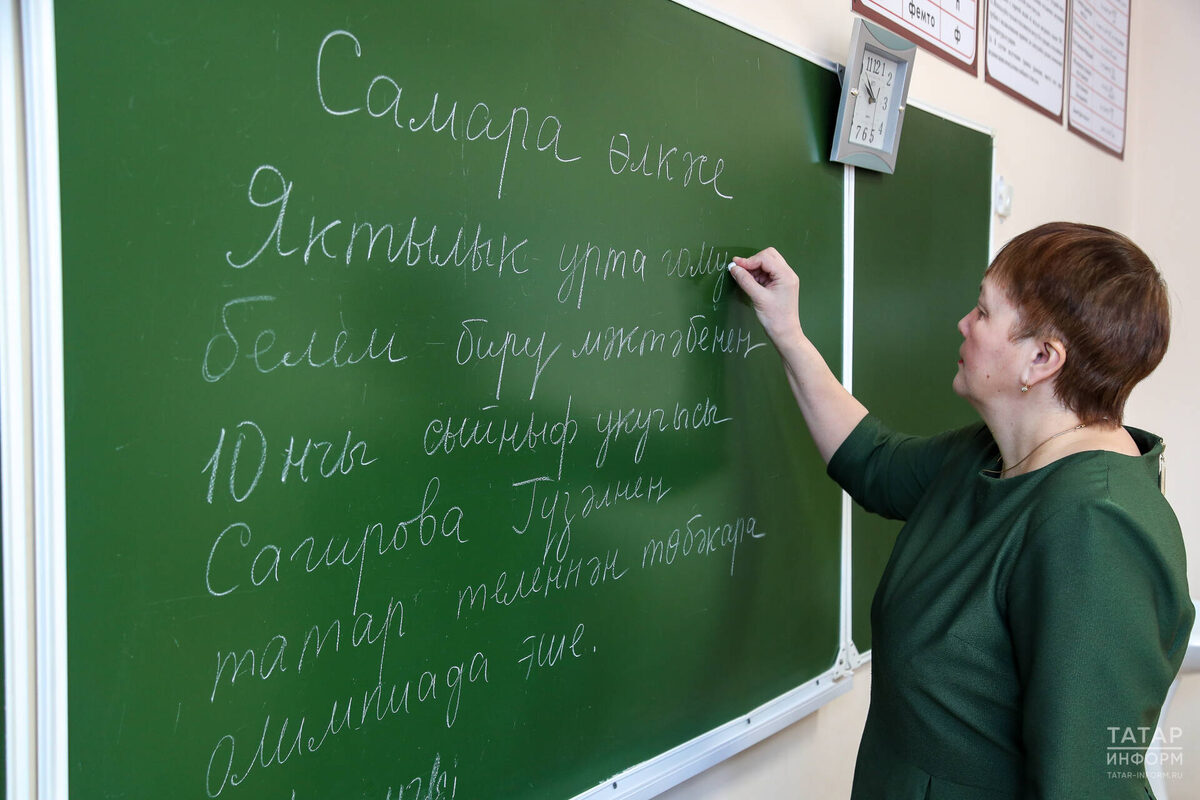 Самара өлкәсе
Яктылык урта гому
белем бирү мәктәбенең
10 нчы сыйныф укучысы
Сагирова Гүзәлнең
татар теленнән төбәкара
олимпиада эше.
фемто ф
11 12 1
2
3
4
7 6 5
ТАТАР
ИНФОРМ
TATAR-INFORM.RU